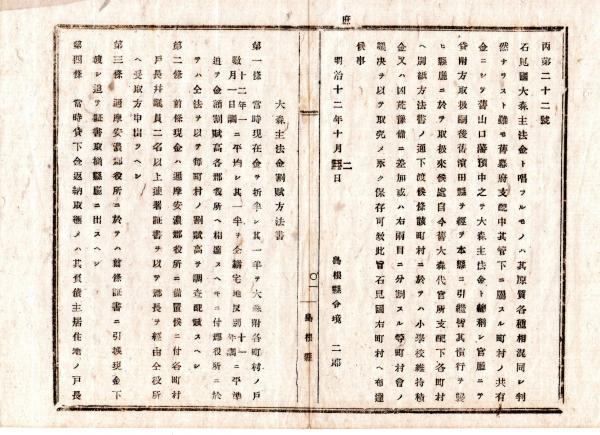 庶
丙第二十二號
石見國大森主法金ト唱フルモノハ其原質各種相混同シ判
然ナラスト雖モ舊幕府支配中其管下ニ屬スル町村ノ共有
金ニシテ舊山口藩預中之ヲ大森主法金ト總稱シ官廳ニテ
貸附方取扱嗣後舊濱田縣ヲ經テ本縣ニ引繼皆其慣行ヲ襲
ヒ縣廳ニ於テ取扱來候處自今舊大森代官所支配下各町村
ヘ別紙方法書ノ通下渡候條該町村ニ於テハ小學校維持積
金又ハ凶荒豫備ニ差加或ハ右兩目ニ分割スル等町村會ノ
議决ヲ以テ取究メ永ク保存可致此旨石見國右町村ヘ布達
候事
明治十二年十月二日
島根縣令境二郎
〇一
島根縣
大森主法金割賦方法書
第一條 當時現在金ヲ折半シ其一半ヲ大森附各町村ノ戸
數十二年一月一日調ニ平均シ其一半ヲ仝耕宅地反別十一年調ニ平準
シ金額割賦高各郡役所ヘ相達スヘキニ付郡役所ニ於
テハ仝法ヲ以テ毎町村ノ割賦高ヲ調査配賦スヘシ
第二條 前條現金ハ邇摩安濃郡役所ニ備置候ニ付各町村
戸長并議員二名以上連署証書ヲ以テ郡長ヲ經由仝役所
ヘ受取方申出ヘシ
第三條 邇摩安濃郡役所ニ於テハ前條証書ニ引換現金下
渡シ追テ証書取纏縣廳ニ出スヘシ
第四條 當時貸下金返納取纏メハ其負債主居住地ノ戸長